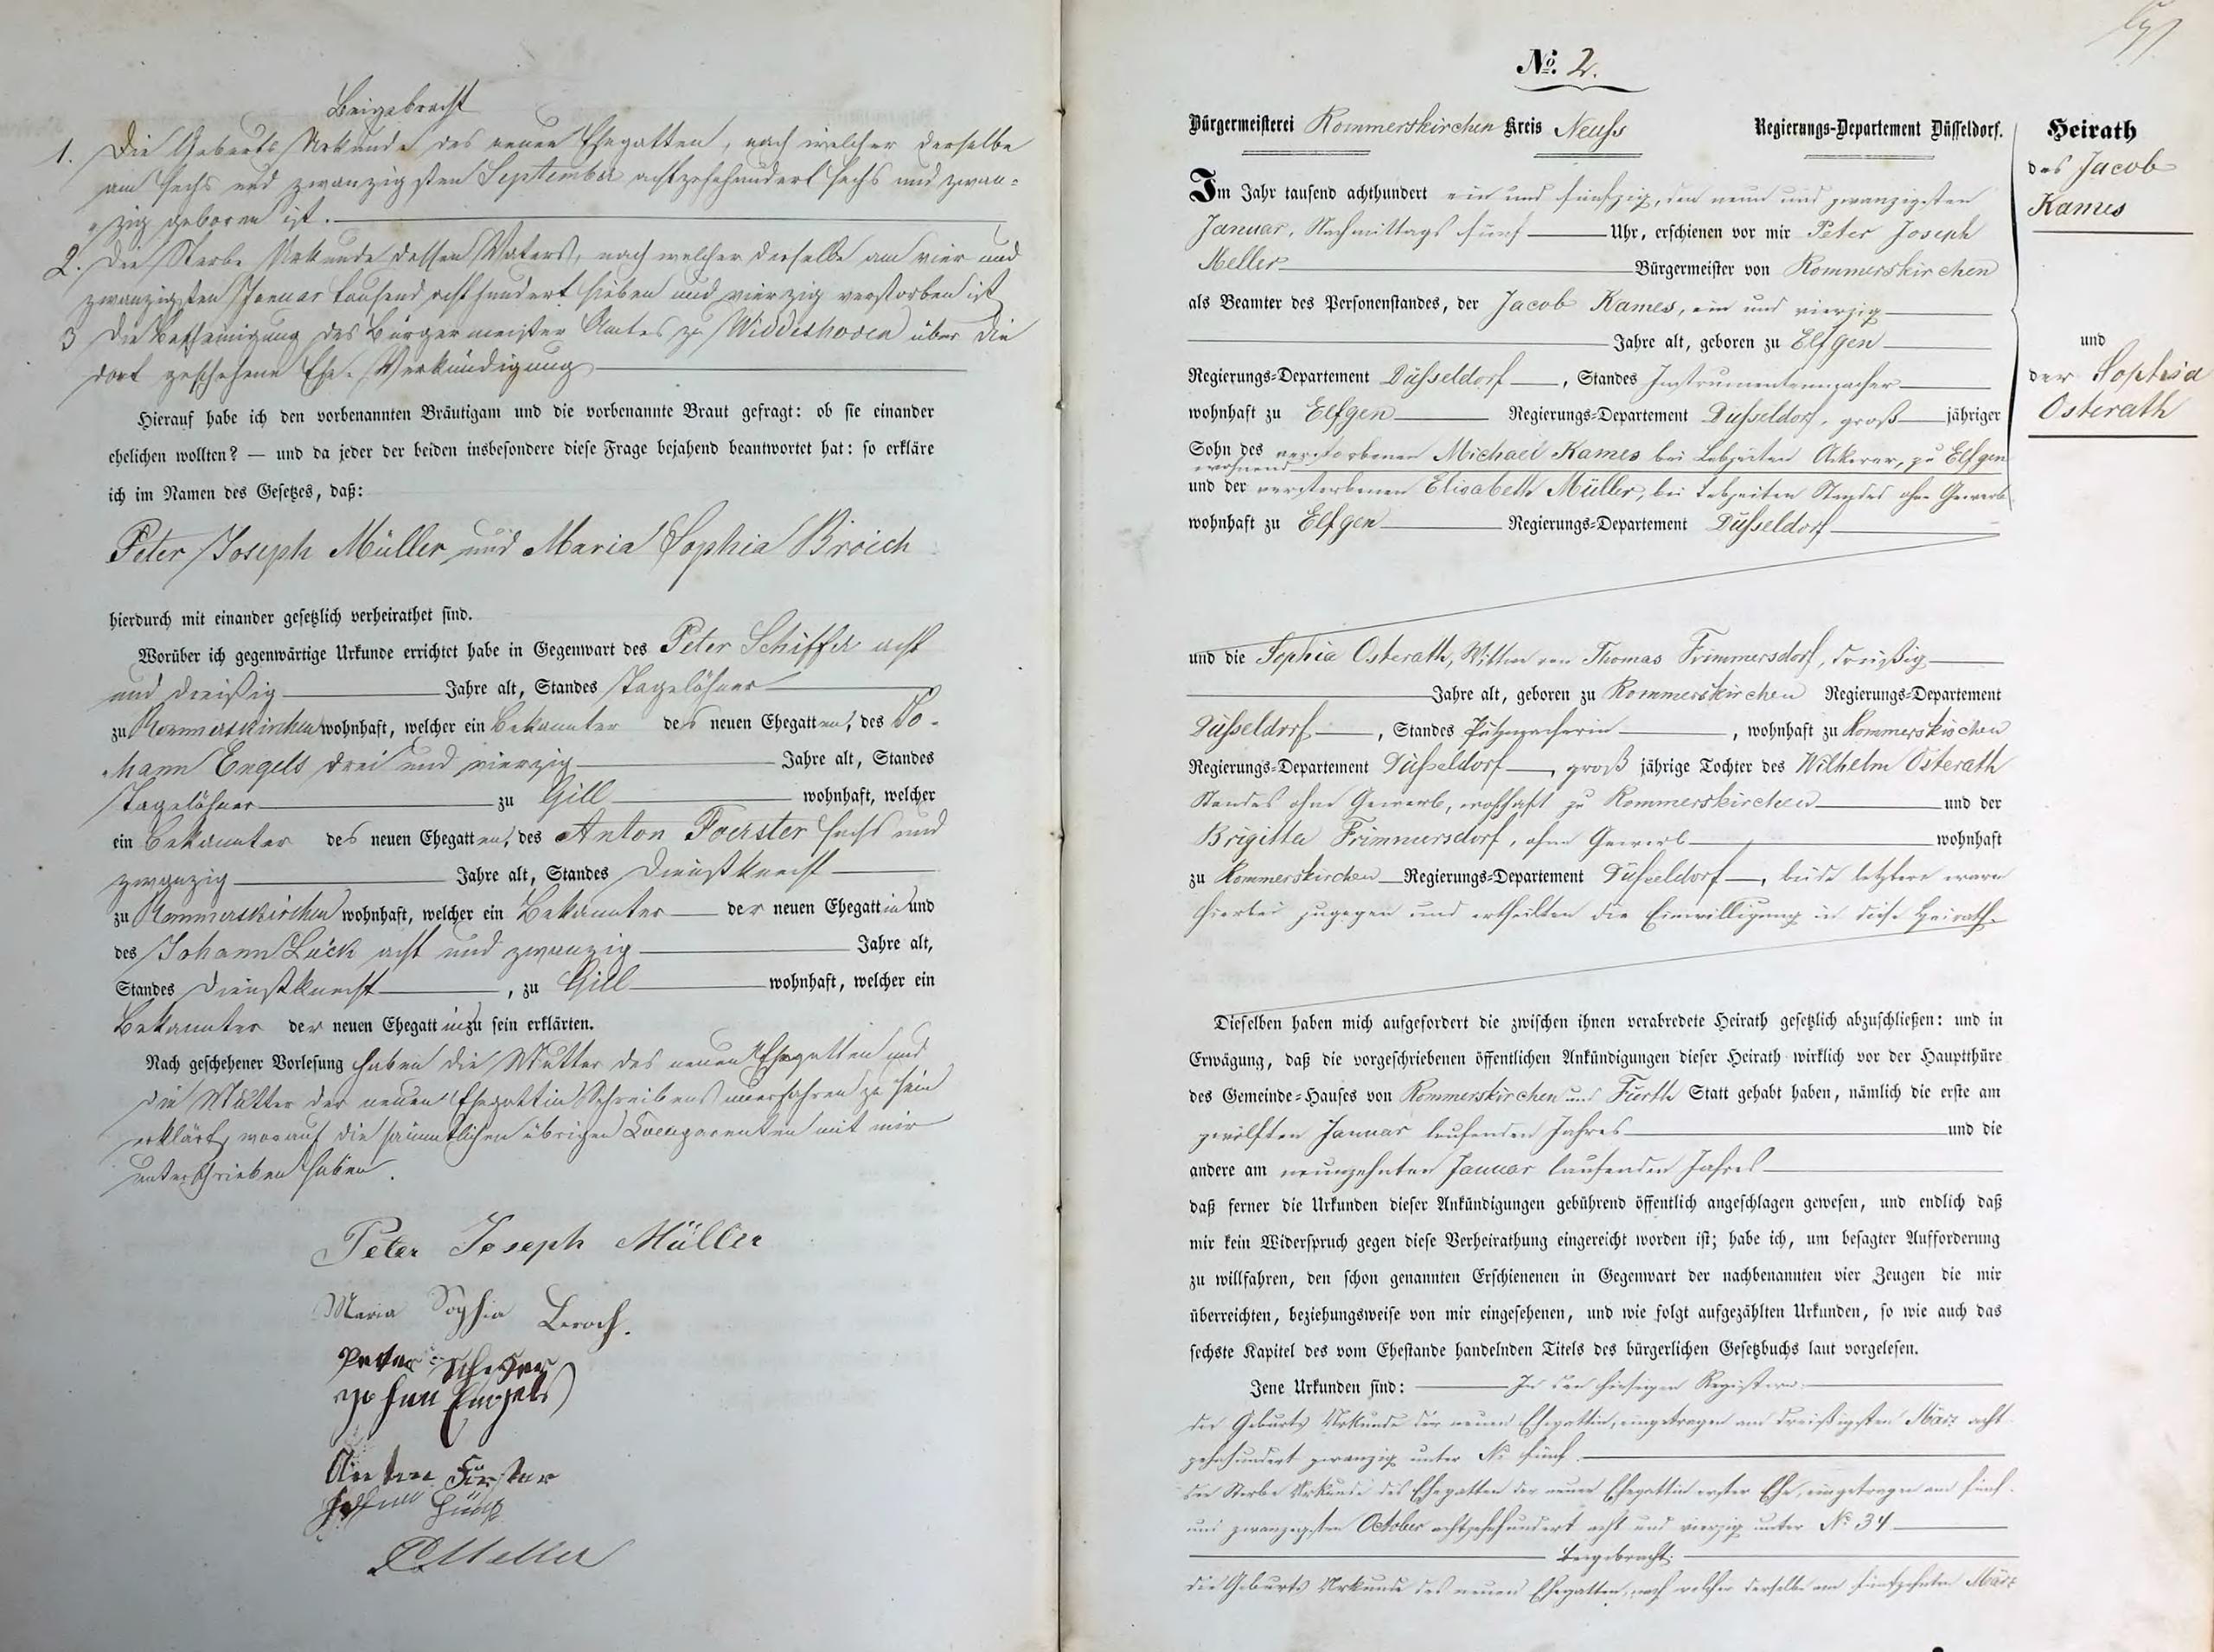 Beigebracht
1. Die Geburts Urkunde des neuen Ehegatten, nach welcher derselbe
am sechs und zwanzigsten September achtzehnhundert sechs und zwan-
zig geboren ist.
2. Die Sterbe Urkunde dessen Vaters, nach welcher derselbe am vier und
zwanzigsten Januar tausend achthundert sieben und vierzig verstorben ist
3 Die Bescheinigung des Bürgermeister Amtes zu Widdeshoven über die
dort geschehene Ehe-Verkündigung
Hierauf habe ich den vorbenannten Bräutigam und die vorbenannte Braut gefragt: ob sie einander
ehelichen wollten? — und da jeder der beiden insbesondere diese Frage bejahend beantwortet hat: so erkläre
ich im Namen des Gesetzes, daß:
Peter Joseph Müller und Maria Sophia Broich
hierdurch mit einander gesetzlich verheirathet sind.
Worüber ich gegenwärtige Urkunde errichtet habe in Gegenwart des Peter Schiffer acht
und dreißig Jahre alt, Standes Tagelöhner
zu Rommerskirchen wohnhaft, welcher ein Bekannter des neuen Ehegatten, des Jo-
hann Engels drei und vierzig Jahre alt, Standes
Tagelöhner zu Gill wohnhaft, welcher
ein Bekannter des neuen Ehegatten, des Anton Foerster sechs und
zwanzig Jahre alt, Standes Dienstknecht
zu Rommerskirchen wohnhaft, welcher ein Bekannter der neuen Ehegattin und
des Johann Lück acht und zwanzig Jahre alt,
Standes Dienstknecht, zu Gill wohnhaft, welcher ein
Bekannter der neuen Ehegattin zu sein erklärten.
Nach geschehener Vorlesung haben die Mutter des neuen Ehegatten und
die Mutter der neuen Ehegattin Schreibens unerfahren zu sein
erklärt, worauf die sämmtlichen übrigen Comparenten mit mir
unterschrieben haben.
Peter Joseph Müller
Maria Sophia Broich.
Peter Schiffer
Johan Engels
Anton Förster
Johann Lück
PMeller
No. 2.
Bürgermeisterei Rommerskirchen Kreis Neuss Regierungs-Departement Düsseldorf.
Im Jahr tausend achthundert ein und fünfzig, den neun und zwanzigsten
Januar, Nachmittags fünf Uhr, erschienen vor mir Peter Joseph
Meller Bürgermeister von Rommerskirchen
als Beamter des Personenstandes, der Jacob Kames, ein und vierzig
Jahre alt, geboren zu Elfgen
Regierungs-Departement Düsseldorf, Standes Instrumentenmacher
wohnhaft zu Elfgen Regierungs-Departement Düsseldorf, groß jähriger
Sohn des verstorbenen Michael Kames bei Lebzeiten Ackerer, zu Elfgen
wohnend
und der verstorbenen Elisabeth Müller, bei Lebzeiten Standes ohne Gewerb
wohnhaft zu Elfgen Regierungs-Departement Düsseldorf
und die Sophia Osterath, Wittwe von Thomas Frimmersdorf, dreißig
Jahre alt, geboren zu Rommerskirchen Regierungs-Departement
Düsseldorf, Standes Putzmacherin, wohnhaft zu Rommerskirchen
Regierungs-Departement Düsseldorf, groß jährige Tochter des Wilhelm Osterath
Standes ohne Gewerb, wohnhaft zu Rommerskirchen und der
Brigitta Frimmersdorf, ohne Gewerb wohnhaft
zu Rommerskirchen Regierungs-Departement Düsseldorf, beide letztere waren
hierbei zugegen und ertheilten die Einwilligung in diese Heirath.
Dieselben haben mich aufgefordert die zwischen ihnen verabredete Heirath gesetzlich abzuschließen: und in
Erwägung, daß die vorgeschriebenen öffentlichen Ankündigungen dieser Heirath wirklich vor der Hauptthüre
des Gemeinde-Hauses von Rommerskirchen und Fürth Statt gehabt haben, nämlich die erste am
zwölften Januar laufenden Jahres und die
andere am neunzehnten Januar laufenden Jahres
daß ferner die Urkunden dieser Ankündigungen gebührend öffentlich angeschlagen gewesen, und endlich daß
mir kein Widerspruch gegen diese Verheirathung eingereicht worden ist; habe ich, um besagter Aufforderung
zu willfahren, den schon genannten Erschienenen in Gegenwart der nachbenannten vier Zeugen die mir
überreichten, beziehungsweise von mir eingesehenen, und wie folgt aufgezählten Urkunden, so wie auch das
sechste Kapitel des vom Ehestande handelnden Titels des bürgerlichen Gesetzbuchs laut vorgelesen.
Jene Urkunden sind: In den hiesigen Registern:
die Geburts Urkunde der neuen Ehegattin, eingetragen am dreißigsten März acht
zehnhundert zwanzig unter No fünf.
die Sterbe Urkunde des Ehegatten der neuen Ehegattin erster Ehe, eingetragen am fünf
und zwanzigsten October achtzehnhundert acht und vierzig unter No 34
Beigebracht:
die Geburts Urkunde des neuen Ehegatten, nach welcher derselbe am fünfzehnten März
Heirath
des Jacob
Kames
und
der Sophia
Osterath